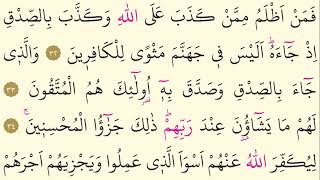 فَمَنْ اَظْلَمُ مِمَّنْ كَذَبَ عَلَى اللّٰهِ وَكَذَّبَ بِالصِّدْقِ
اِذْ جَٓاءَهُۜ اَلَيْسَ ف۪ي جَهَنَّمَ مَثْوًى لِلْكَافِر۪ينَ ﴿٣٢﴾ وَالَّذ۪ي
جَٓاءَ بِالصِّدْقِ وَصَدَّقَ بِه۪ٓ اُو۬لٰٓئِكَ هُمُ الْمُتَّقُونَ ﴿٣٣﴾
لَهُمْ مَا يَشَٓاؤُ۫نَ عِنْدَ رَبِّهِمْۜ ذٰلِكَ جَزٰٓؤُا الْمُحْسِن۪ينَۚ ﴿٣٤﴾
لِيُكَفِّرَ اللّٰهُ عَنْهُمْ اَسْوَاَ الَّذ۪ي عَمِلُوا وَيَجْزِيَهُمْ اَجْرَهُمْ